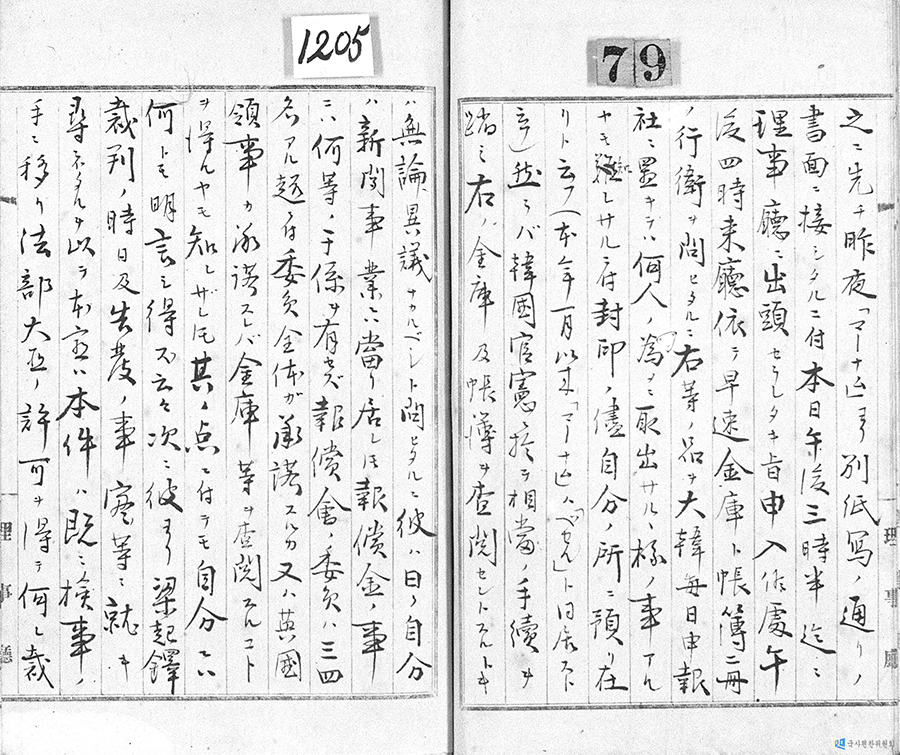 79
之ニ先チ昨夜「マーナム」ヨリ別紙写ノ通リノ
書面ニ接シタルニ付本日午後三時半迄ニ
理事廳ニ出頭セラレタキ旨申入候處午
後四時来廳依テ早速金庫ト帳簿二冊
ノ行衛ヲ問ヒタルニ右等ノ品ヲ大韓毎日申報
社ニ置キテハ何人ノ為メニ取出サルヽ様ノ事アル
ヤモ知レサルニ付封印ノ儘自分ノ所ニ預リ在
リト云フ(本年一月以来「マーナム」ハ「ベセル」ト同居スト
云)然ラバ韓國官憲於テ相當ノ手續ヲ
踏ミ右ノ金庫及帳簿ヲ查閲セントスルトキ
1205
ハ無論異議ナカルベシト問ヒタルニ彼ハ曰ク自分
ハ新聞事業ニ當リ居レトモ報償金ノ事
ニハ何等ノ干係ヲ有セズ報償會ノ委員ハ三四
名アル趣ニ付委員全体ガ承諾スルカ又ハ英國
領事カ承諾スレバ金庫等ヲ查閲スルコト
ヲ得ルヤモ知レザレトモ其ノ点ニ付テモ自分ニハ
何トモ明言シ得ズ云々次ニ彼ヨリ梁起鐸
裁判ノ時日及告發ノ事実等ニ就キ
尋ネタルヲ以テ本官ハ本件ハ既ニ検事ノ
手ニ移リ法部大臣ノ許可ヲ得テ何レ裁
理事廳
理事廳
국사편찬위원회